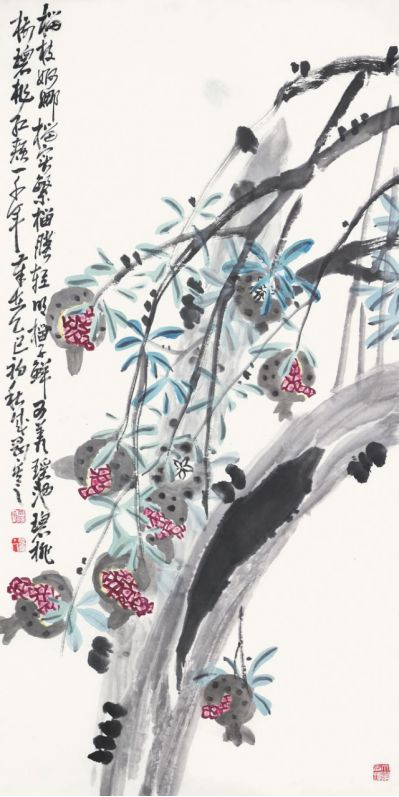 榴枝婀娜榴实繁榴膜轻明榴子鲜可羡瑶池碧桃
树碧桃红颊一千年岁在乙巳初秋